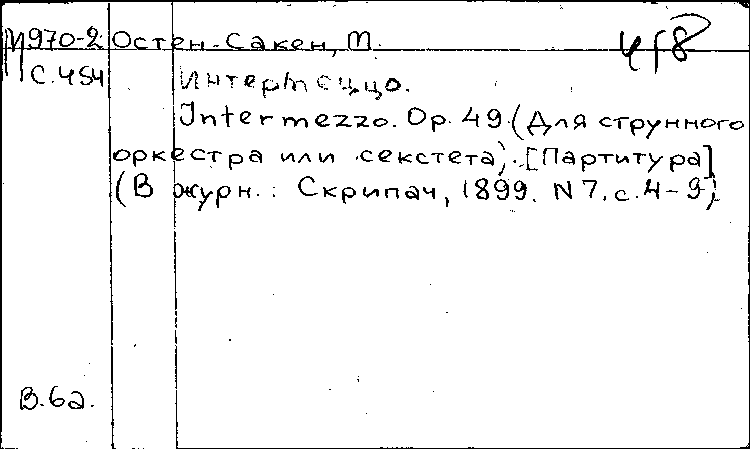 М970-2 Остен-Сакен, М.
С.454 Интермеццо.
Intermezzo. Op. 49 (Для струнного
оркестра или секстета). [Партитура]
(В журн.: Скрипач, 1899. N 7, с. 4-9)
В.6а.